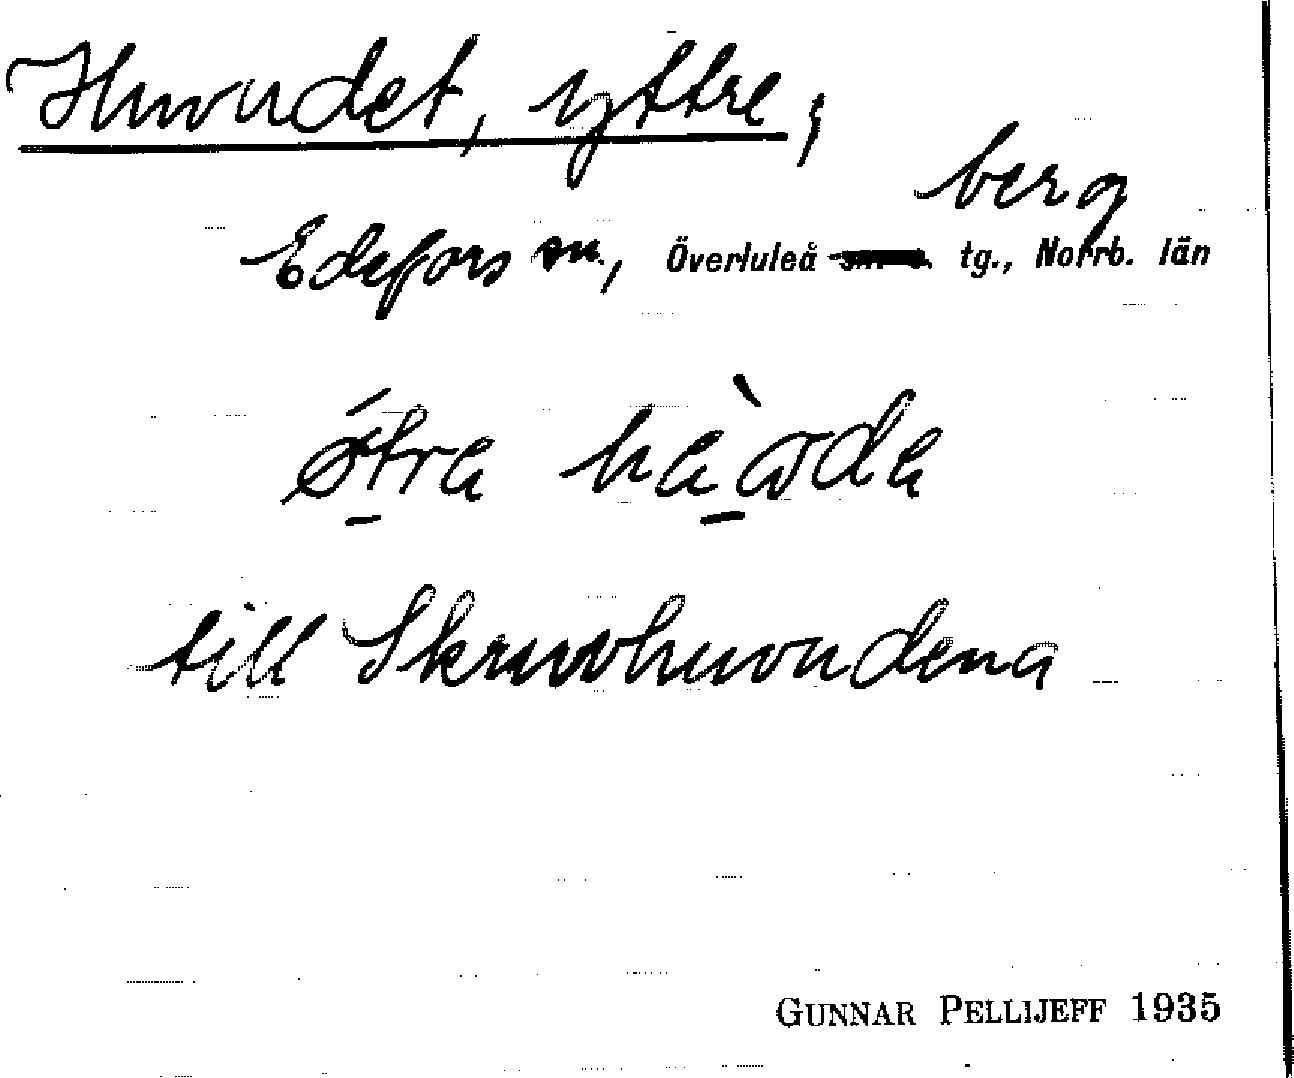 Huvudet, yttre,
berg
Edefors sn., Överluleå tg., Norrb. län
till Skruvhuvudena
GUNNAR PELLIJEFF 1935